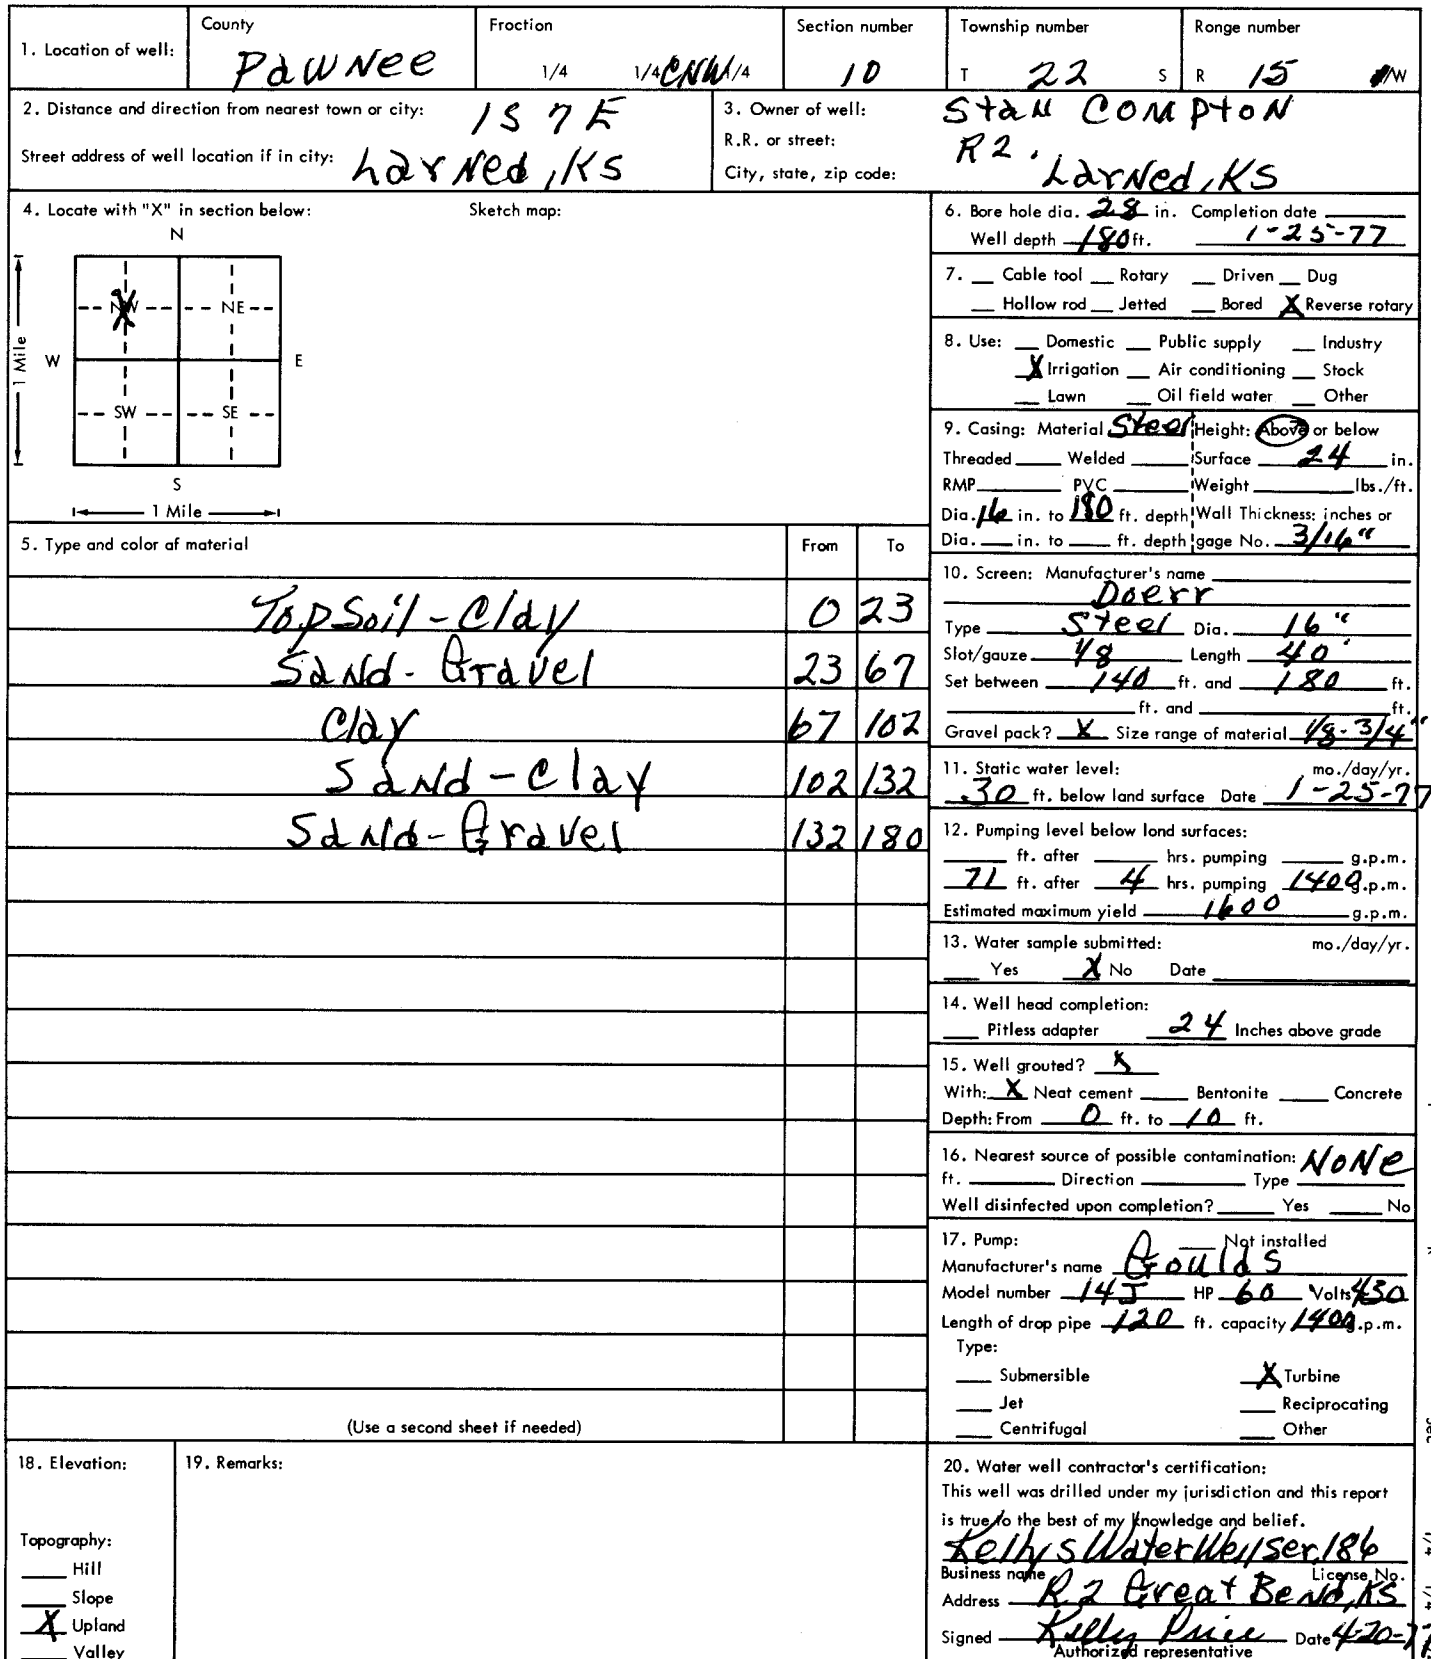 1. Location of well:
County
Pawnee
Fraction
1/4 1/4 CNW 1/4
Section number
10
Township number
T 22 S
Range number
R 15 E/W
2. Distance and direction from nearest town or city: 1S 7E
Street address of well location if in city: Larned, KS
3. Owner of well: Stan Compton
R.R. or street: R2.
City, state, zip code: Larned, KS
4. Locate with "X" in section below:
Sketch map:
N
NW NE
W E
1 Mile
SW SE
S
1 Mile
5. Type and color of material From To
Top Soil - Clay 0 23
Sand - Gravel 23 67
Clay 67 102
Sand - Clay 102 132
Sand - Gravel 132 180
(Use a second sheet if needed)
6. Bore hole dia. 28 in. Completion date
Well depth 180 ft. 1-25-77
7. __ Cable tool __ Rotary __ Driven __ Dug
__ Hollow rod __ Jetted __ Bored X Reverse rotary
8. Use: __ Domestic __ Public supply __ Industry
X Irrigation __ Air conditioning __ Stock
__ Lawn __ Oil field water __ Other
9. Casing: Material Steel Height: Above or below
Threaded ____ Welded ____ Surface 24 in.
RMP ____ PVC ____ Weight ____ lbs./ft.
Dia. 16 in. to 180 ft. depth Wall Thickness: inches or
Dia. __ in. to __ ft. depth gage No. 3/16"
10. Screen: Manufacturer's name
Doerr
Type Steel Dia. 16"
Slot/gauze 1/8 Length 40'
Set between 140 ft. and 180 ft.
____ ft. and ____ ft.
Gravel pack? X Size range of material 1/8-3/4"
11. Static water level: mo./day/yr.
30 ft. below land surface Date 1-25-77
12. Pumping level below land surfaces:
____ ft. after ____ hrs. pumping ____ g.p.m.
71 ft. after 4 hrs. pumping 1400 g.p.m.
Estimated maximum yield 1600 g.p.m.
13. Water sample submitted: mo./day/yr.
__ Yes X No Date ____
14. Well head completion:
__ Pitless adapter 24 Inches above grade
15. Well grouted? X
With: X Neat cement __ Bentonite __ Concrete
Depth: From 0 ft. to 10 ft.
16. Nearest source of possible contamination: NONE
ft. ____ Direction ____ Type ____
Well disinfected upon completion? ____ Yes ____ No
17. Pump: __ Not installed
Manufacturer's name Goulds
Model number 14J HP 60 Volts 430
Length of drop pipe 120 ft. capacity 1400 g.p.m.
Type:
__ Submersible X Turbine
__ Jet __ Reciprocating
__ Centrifugal __ Other
18. Elevation:
Topography:
__ Hill
__ Slope
X Upland
__ Valley
19. Remarks:
20. Water well contractor's certification:
This well was drilled under my jurisdiction and this report
is true to the best of my knowledge and belief.
Kellys Water Well Ser. 186
Business name License No.
Address R2 Great Bend, KS
Signed Kelly Price Date 4-20-77
Authorized representative